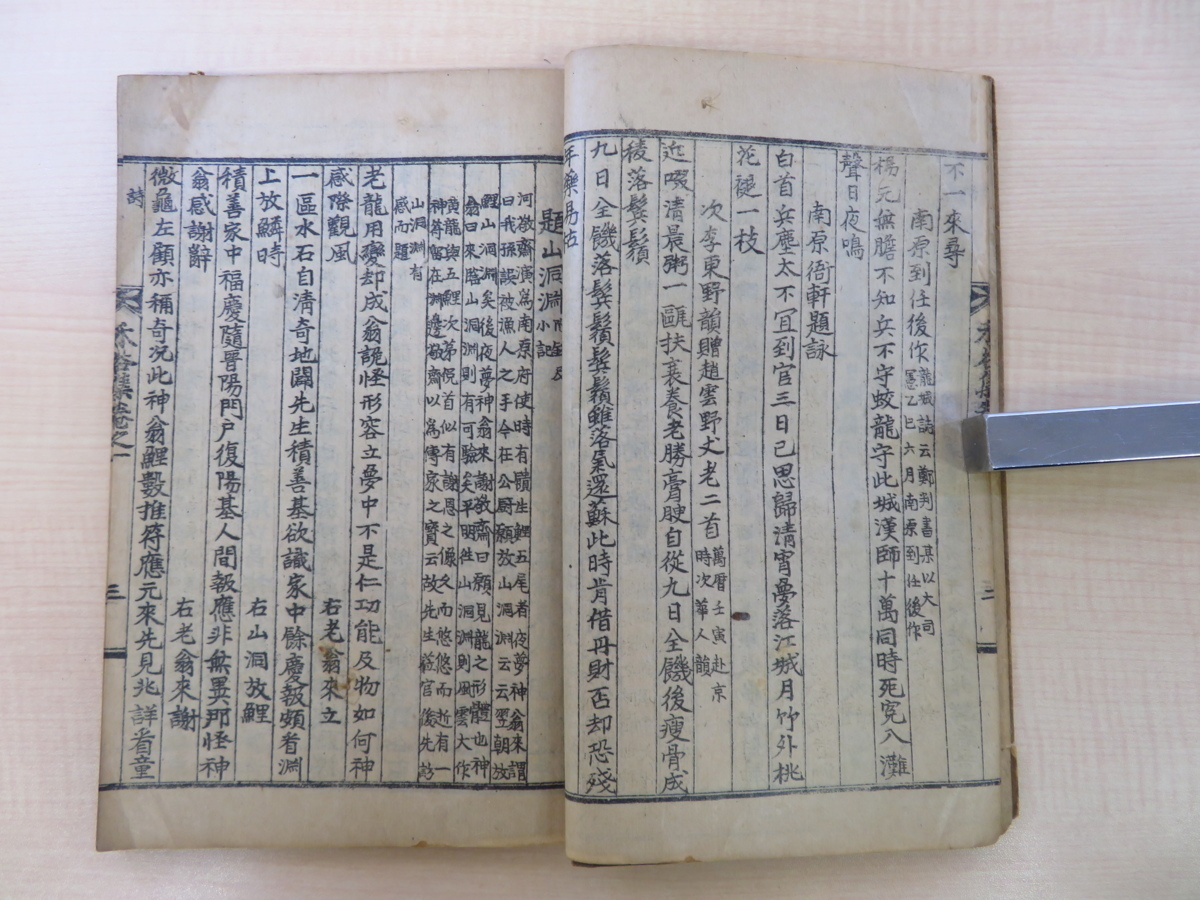 不一來尋
南原到任後作 龍城誌云鄭判書某以大司
憲乙巳六月南原到任後作
楊元無膽不知兵不守蛟龍守此城漢師十萬同時死寃入灘
聲日夜鳴
南原衙軒題詠
白首兵塵太不冝到官三日已思歸清宵夢落江城月竹外桃
花褪一枝
次李東野韻贈趙雲野丈老二首 萬曆壬寅赴京
時次華人韻
近啜清晨粥一甌扶衰養老勝膏腴自從九日全饑後瘦骨成
稜落鬂鬚
九日全饑落鬂鬚鬂鬚雖落氣還蘇此時肯借丹財否却恐殘
年藥易沽
題山洞淵
小記
河敬齋演爲南原府使時有饋生鯉五尾者夜夢神翁來謂
曰我孫誤被漁人之手今在公厨願放山洞淵云云翌朝放
鯉山洞淵矣後夜夢神翁來謝敬齋曰願見龍之形體也神
翁曰來臨山洞淵則有可驗矣平明往山洞淵則風雲大作
黃龍與五鯉次第俛首似有謝恩之像久而悠悠而近有一
神 在淵邊敬齋以爲傳家之寶云故先生莅官後先
山洞淵有
感而題
老龍用變却成翁詭怪形容立夢中不是仁功能及物如何神
感際觀風
右老翁來立
一區水石自清奇地闢先生積善基欲識家中餘慶報頻看淵
上放鱗時
右山洞放鯉
積善家中福慶隨晋陽門戶復陽基人間報應非無異那怪神
翁感謝辭
右老翁來謝
微龜左顧亦稱奇况此神翁鯉數推符應元來先見兆詳看童
詩
卷之一
三